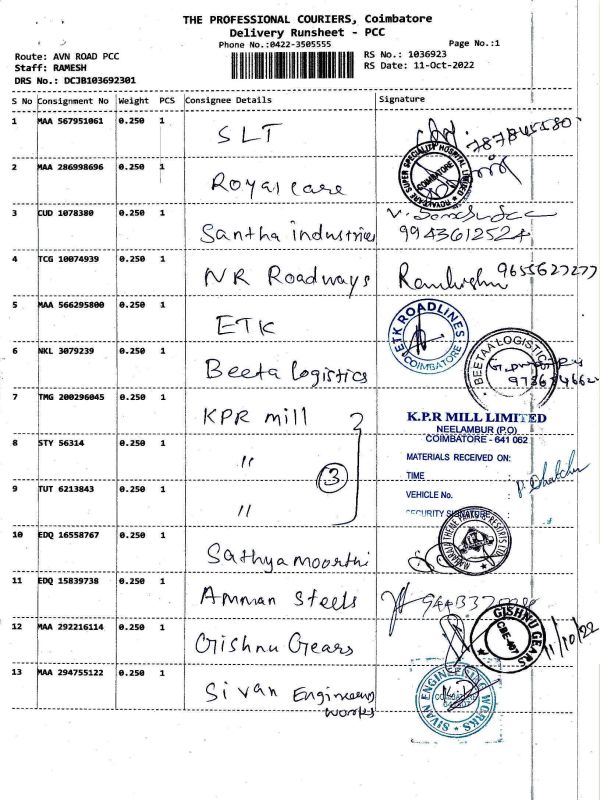 THE PROFESSIONAL COURIERS, Coimbatore
Delivery Runsheet - PCC
Phone No.:0422-3505555
Page No.:1
Route: AVN ROAD PCC
RS No.: 1036923
Staff: RAMESH
RS Date: 11-Oct-2022
DRS No.: DCJB103692301
S No Consignment No Weight PCS Consignee Details Signature
1 MAA 567951061 0.250 1 SLT
2 MAA 286998696 0.250 1 Royal care
ROYALCARE SUPER SPECIALITY HOSPITAL LIMITED COIMBATORE
3 CUD 1078380 0.250 1 Santha industries 9943612524
4 TCG 10074939 0.250 1 NR Roadways 9655627277
5 MAA 566295800 0.250 1 ETK
ETK ROADLINES COIMBATORE
6 NKL 3079239 0.250 1 Beeta logistics
BEETAA LOGISTICS
7 TMG 200296045 0.250 1 KPR mill
K.P.R MILL LIMITED
NEELAMBUR (P.O)
COIMBATORE - 641 062
8 STY 56314 0.250 1 "
3
MATERIALS RECEIVED ON:
TIME :
9 TUT 6213843 0.250 1 "
VEHICLE No. :
SECURITY SIGNATURE :
10 EDQ 16558767 0.250 1 Sathyamoorthi
11 EDQ 15839738 0.250 1 Amman Steels
12 MAA 292216114 0.250 1 Gishnu Gears
GISHNU GEARS CBE-407
11/10/22
13 MAA 294755122 0.250 1 Sivan Engineering works
SIVAN ENGINEERING WORKS